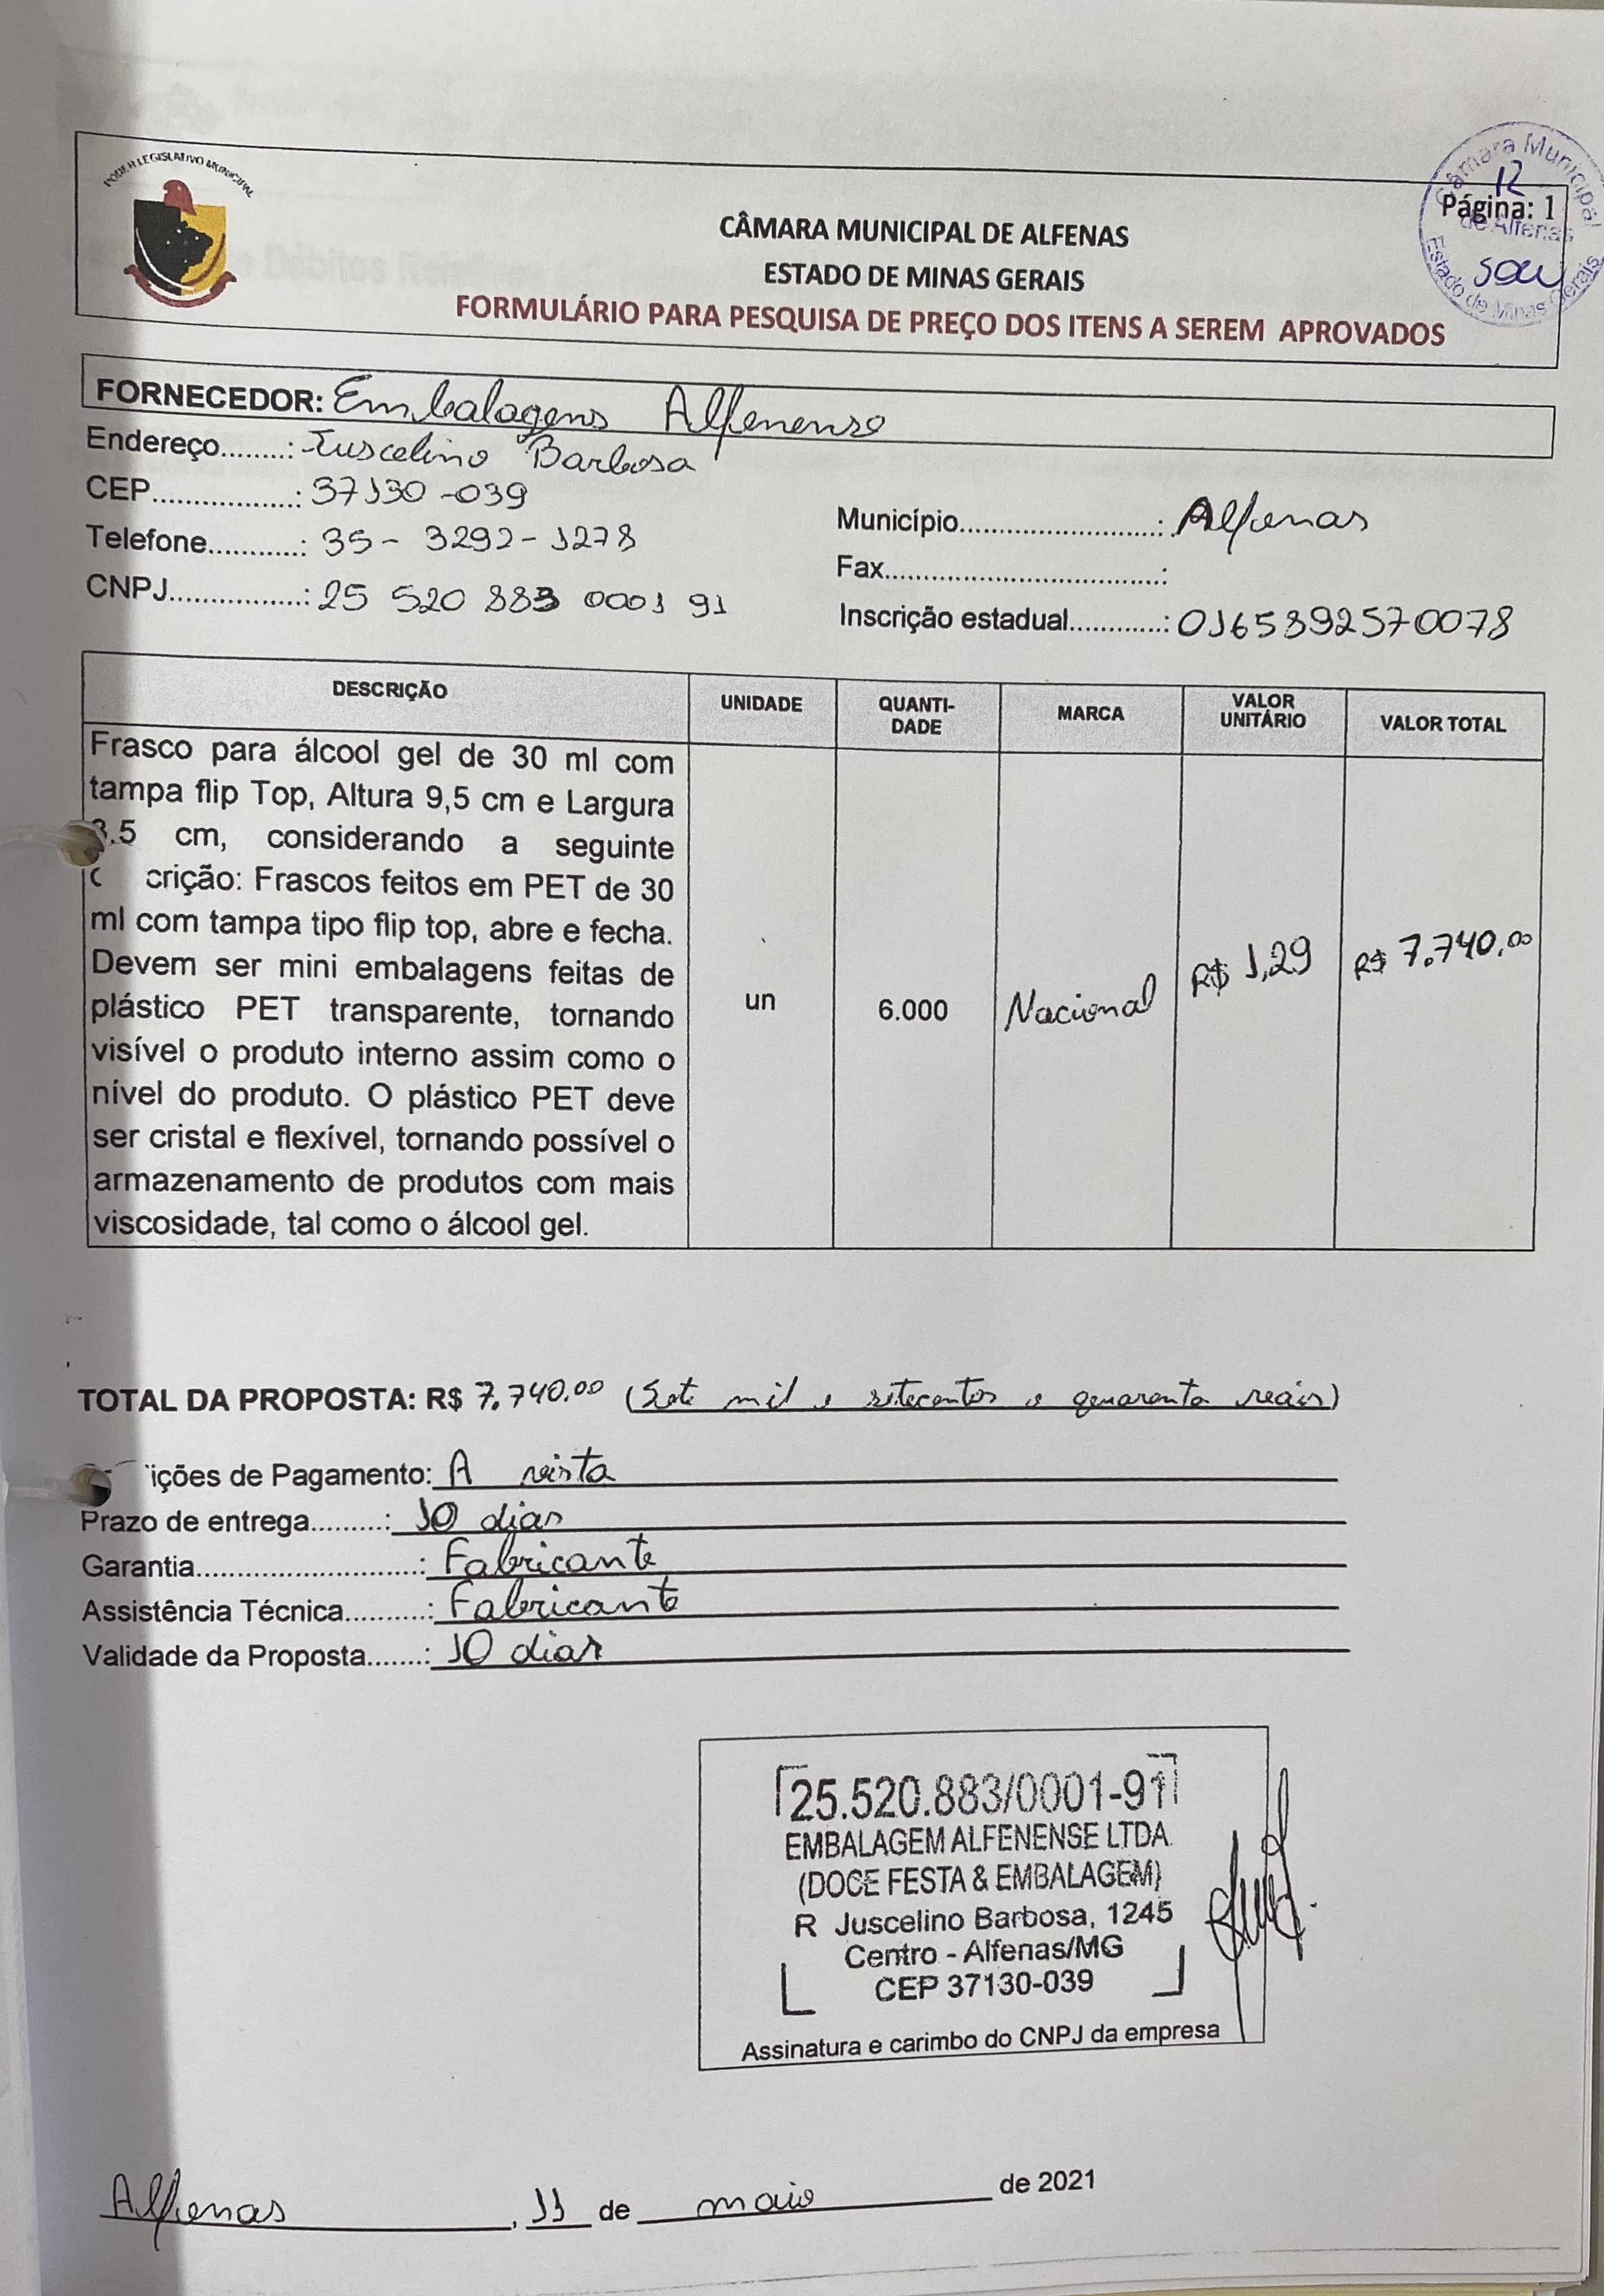 PODER LEGISLATIVO MUNICIPAL
Câmara Municipal
12
Página: 1
de Alfenas
Estado de Minas Gerais
CÂMARA MUNICIPAL DE ALFENAS
ESTADO DE MINAS GERAIS
FORMULÁRIO PARA PESQUISA DE PREÇO DOS ITENS A SEREM APROVADOS
FORNECEDOR: Embalagens Alfenense
Endereço........: Juscelino Barbosa
CEP...............: 37130-039
Município.........................: Alfenas
Telefone...........: 35- 3292-1278
Fax...................................:
CNPJ................: 25 520 883 0001 91
Inscrição estadual............: 0165892570078
DESCRIÇÃO UNIDADE QUANTI-DADE MARCA VALOR UNITÁRIO VALOR TOTAL
Frasco para álcool gel de 30 ml com
tampa flip Top, Altura 9,5 cm e Largura
3.5 cm, considerando a seguinte
crição: Frascos feitos em PET de 30
ml com tampa tipo flip top, abre e fecha.
Devem ser mini embalagens feitas de
plástico PET transparente, tornando
visível o produto interno assim como o
nível do produto. O plástico PET deve
ser cristal e flexível, tornando possível o
armazenamento de produtos com mais
viscosidade, tal como o álcool gel.
un 6.000 Nacional R$ 1,29 R$ 7.740,00
TOTAL DA PROPOSTA: R$ 7.740,00 (Sete mil e setecentos e quarenta reais)
ições de Pagamento: A vista
Prazo de entrega.........: 10 dias
Garantia.........................: Fabricante
Assistência Técnica..........: Fabricante
Validade da Proposta.......: 10 dias
25.520.883/0001-91
EMBALAGEM ALFENENSE LTDA.
(DOCE FESTA & EMBALAGEM)
R Juscelino Barbosa, 1245
Centro - Alfenas/MG
CEP 37130-039
Assinatura e carimbo do CNPJ da empresa
Alfenas, 11 de maio de 2021